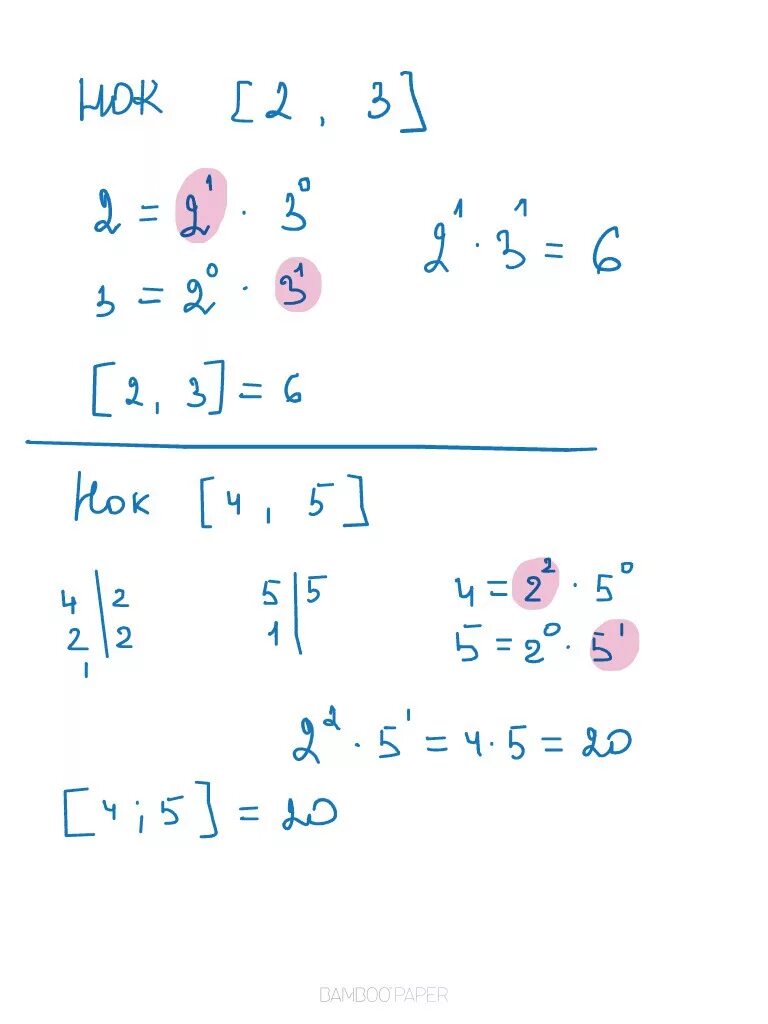 НОК [2, 3]
2 = 2¹ · 3⁰
3 = 2⁰ · 3¹
2¹ · 3¹ = 6
[2, 3] = 6
Нок [4, 5]
4 | 2
2 | 2
1
5 | 5
1 |
4 = 2² · 5⁰
5 = 2⁰ · 5¹
2² · 5¹ = 4 · 5 = 20
[4; 5] = 20
BAMBOO PAPER